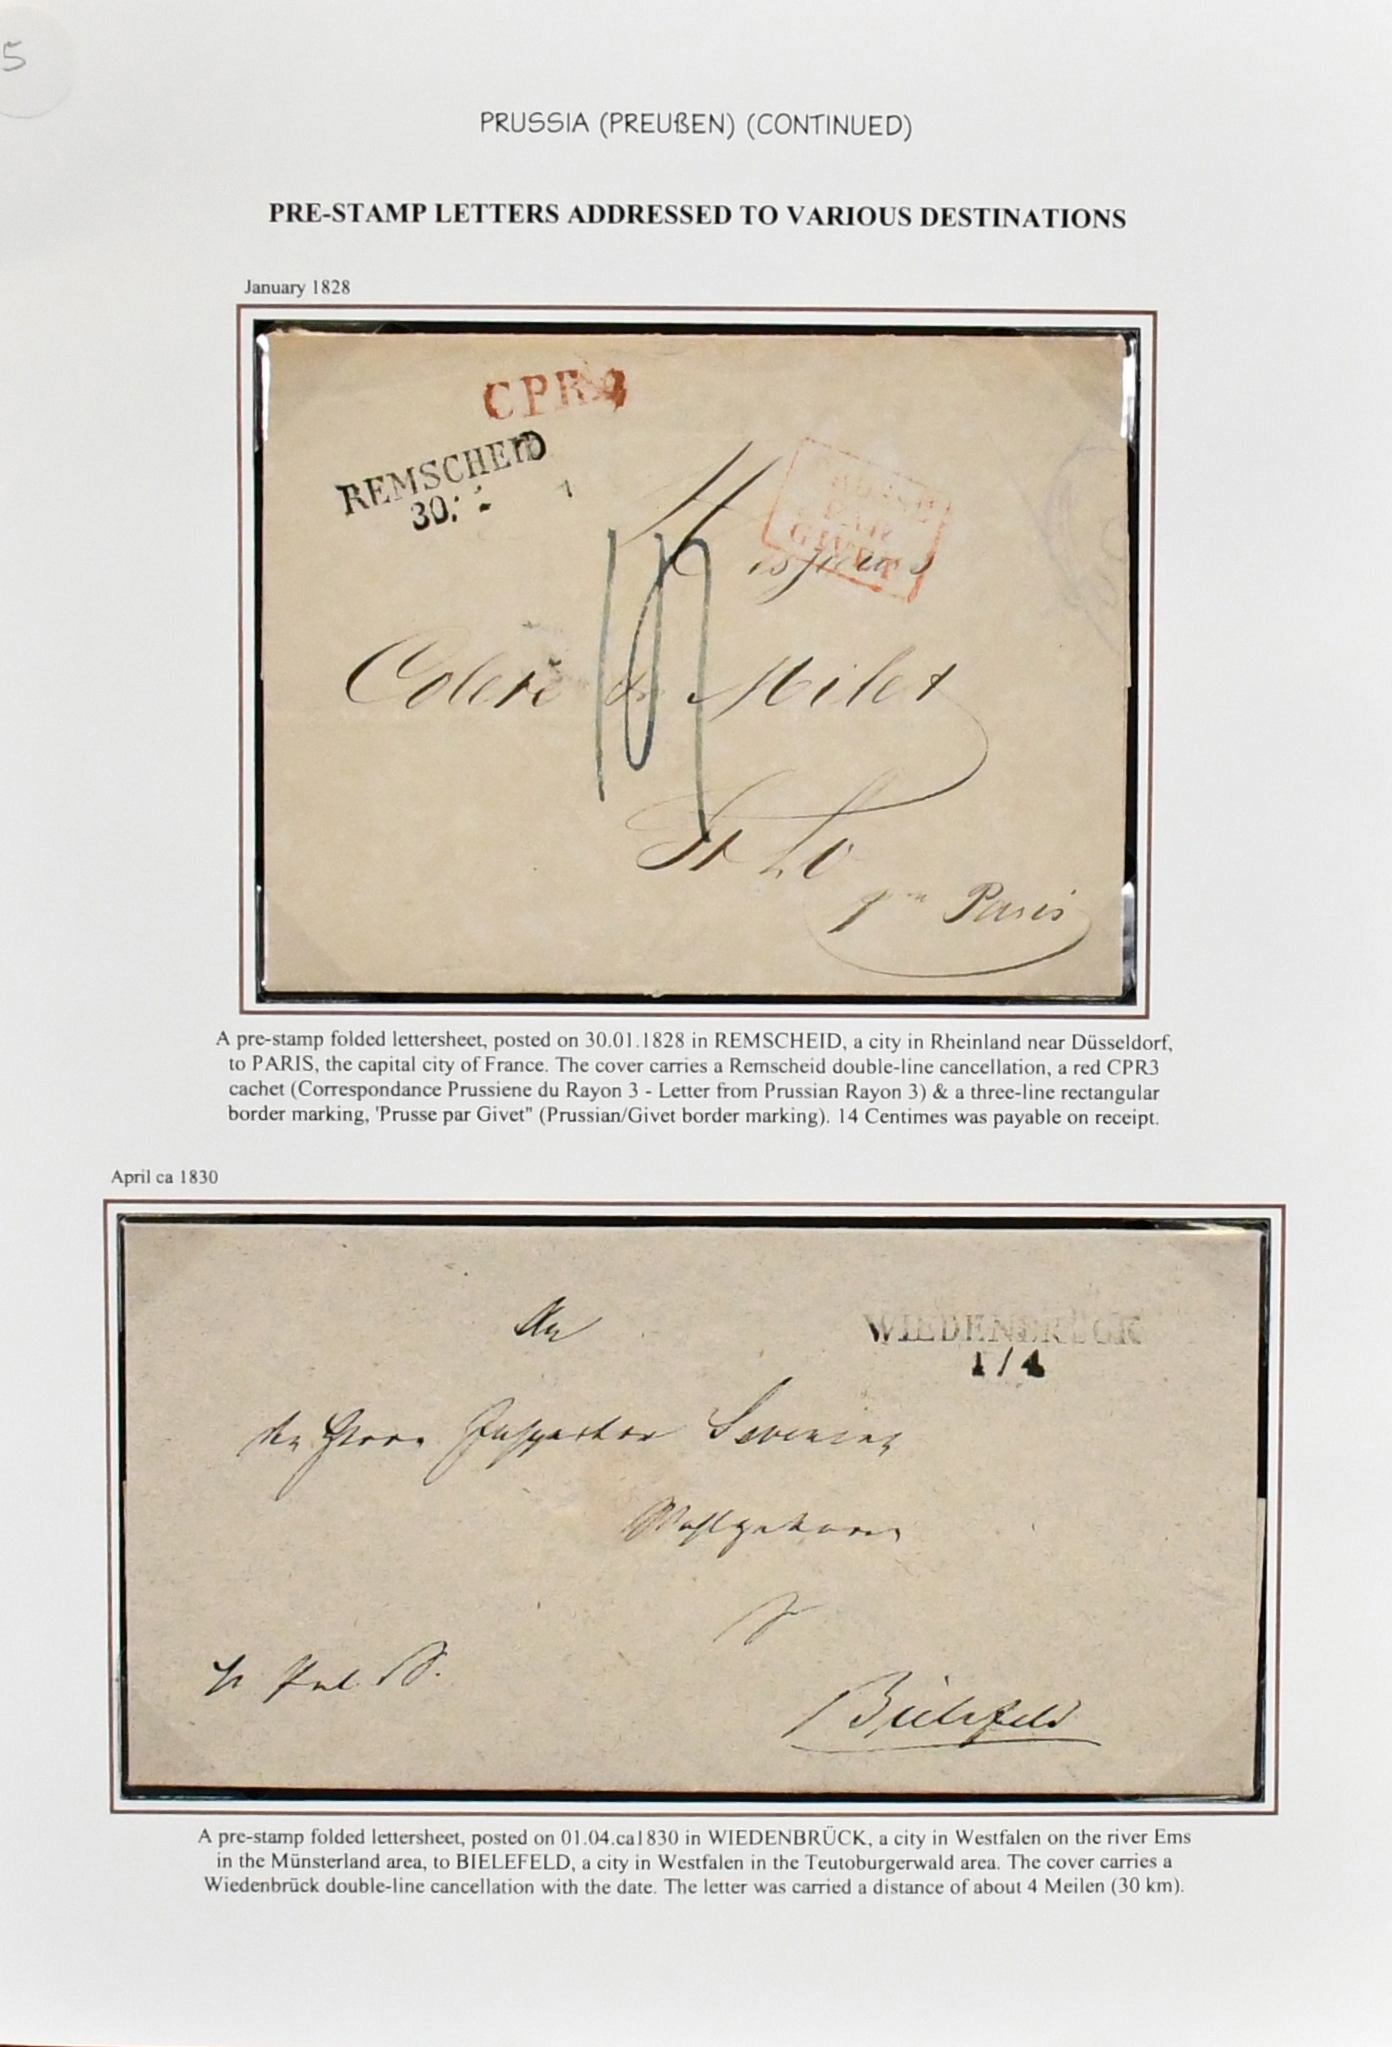 5
PRUSSIA (PREUßEN) (CONTINUED)
PRE-STAMP LETTERS ADDRESSED TO VARIOUS DESTINATIONS
January 1828
CPR3
REMSCHEID
30.
PAR
GIVET
Milet
St Lo
Paris
A pre-stamp folded lettersheet, posted on 30.01.1828 in REMSCHEID, a city in Rheinland near Düsseldorf,
to PARIS, the capital city of France. The cover carries a Remscheid double-line cancellation, a red CPR3
cachet (Correspondance Prussiene du Rayon 3 - Letter from Prussian Rayon 3) & a three-line rectangular
border marking, 'Prusse par Givet" (Prussian/Givet border marking). 14 Centimes was payable on receipt.
April ca 1830
An
WIEDENBRÜCK
1/4
Herrn Inspector
Wohlgeboren
Bielefeld
A pre-stamp folded lettersheet, posted on 01.04.ca1830 in WIEDENBRÜCK, a city in Westfalen on the river Ems
in the Münsterland area, to BIELEFELD, a city in Westfalen in the Teutoburgerwald area. The cover carries a
Wiedenbrück double-line cancellation with the date. The letter was carried a distance of about 4 Meilen (30 km).